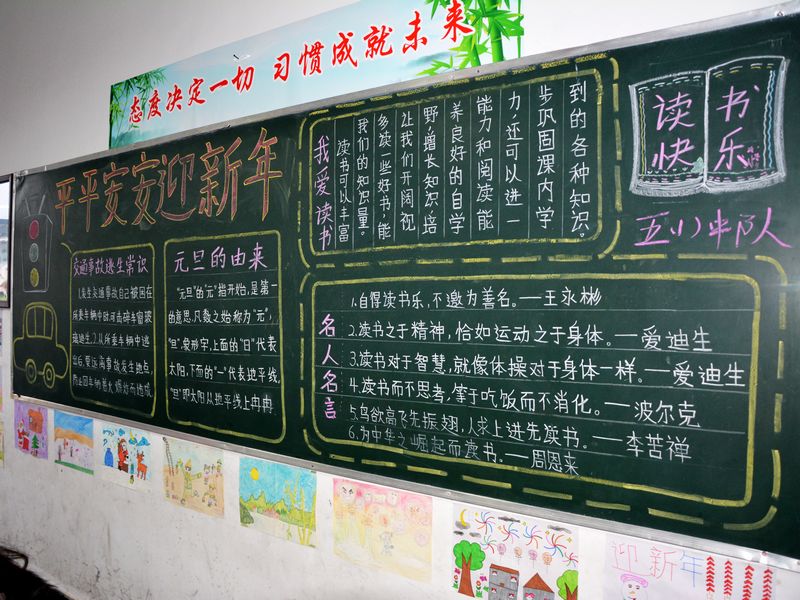 态度决定一切 习惯成就未来
平平安安迎新年
交通事故逃生常识
1.发生交通事故自己被困在
所乘车辆中时,可击碎车窗玻
璃逃生;2.从所乘车辆中逃
出后,要远离事故发生地点,
防止因车辆着火、爆炸而造成
元旦的由来
"元旦"的"元"指开始,是第一
的意思,凡数之始称为"元",
"旦",象形字,上面的"日"代表
太阳,下面的"一"代表地平线,
"旦"即太阳从地平线上冉冉
我爱读书
读书可以丰富
我们的知识量。
多读一些好书,能
让我们开阔视
野,增长知识,培
养良好的自学
能力和阅读能
力,还可以进一
步巩固课内学
到的各种知识。
读书
快乐
五(1)中队
名人名言
1.自得读书乐,不邀为善名。——王永彬
2.读书之于精神,恰如运动之于身体。——爱迪生
3.读书对于智慧,就像体操对于身体一样。——爱迪生
4.读书而不思考,等于吃饭而不消化。——波尔克
5.鸟欲高飞先振翅,人求上进先读书。——李苦禅
6.为中华之崛起而读书。——周恩来
迎新年